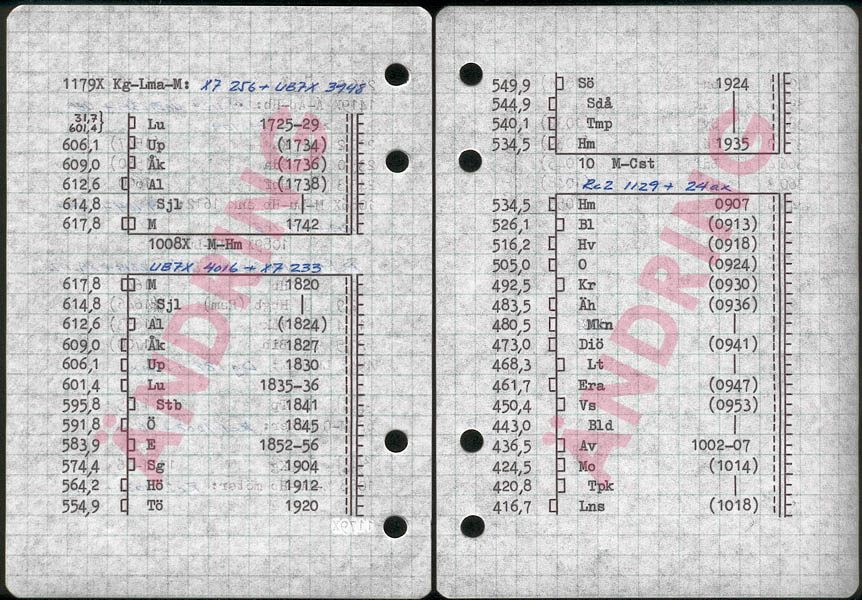 1179X Kg-Lma-M: X7 256 + UB7X 3948
31,7
601,4 Lu 1725-29
606,1 Up (1734)
609,0 Åk (1736)
612,6 Al (1738)
614,8 Sjl |
617,8 M 1742
1008X M-Hm
UB7X 4016 + X7 233
617,8 M 1820
614,8 Sjl |
612,6 Al (1824)
609,0 Åk 1827
606,1 Up 1830
601,4 Lu 1835-36
595,8 Stb 1841
591,8 Ö 1845
583,9 E 1852-56
574,4 Sg 1904
564,2 Hö 1912
554,9 Tö 1920
ÄNDRING
549,9 Sö 1924
544,9 Sdå |
540,1 Tmp |
534,5 Hm 1935
10 M-Cst
Rc2 1129 + 24ax
534,5 Hm 0907
526,1 Bl (0913)
516,2 Hv (0918)
505,0 O (0924)
492,5 Kr (0930)
483,5 Äh (0936)
480,5 Mkn |
473,0 Diö (0941)
468,3 Lt |
461,7 Era (0947)
450,4 Vs (0953)
443,0 Bld |
436,5 Av 1002-07
424,5 Mo (1014)
420,8 Tpk |
416,7 Lns (1018)
ÄNDRING